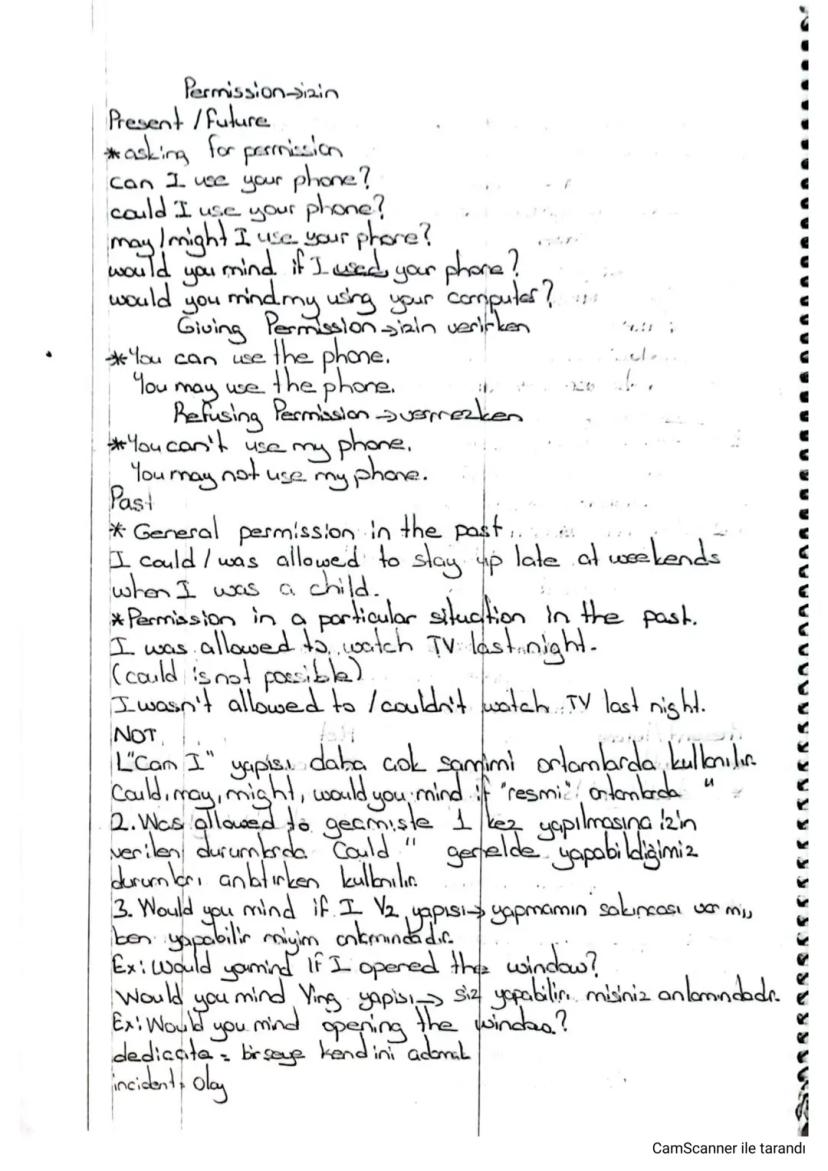 Permission→izin
Present / Future
*asking for permission
can I use your phone?
could I use your phone?
may/might I use your phone?
would you mind if I used your phone?
would you mind my using your computer?
Giving Permission→izin verirken
*You can use the phone.
You may use the phone.
Refusing Permission→vermezken
*You can't use my phone.
You may not use my phone.
Past
* General permission in the past.
I could / was allowed to stay up late at weekends
when I was a child.
*Permission in a particular situation in the past.
I was allowed to watch TV last night.
(could is not possible)
I wasn't allowed to /couldn't watch TV last night.
NOT
1."Can I" yapısı daha çok samimi ortamlarda kullanılır.
Could, may, might, would you mind if "resmi" ortamlarda "
2. Was allowed to geçmişte 1 kez yapılmasına izin
verilen durumlarda Could " genelde yapabildiğimiz
durumları anlatırken kullanılır.
3. Would you mind if I V2 yapısı→ yapmamın sakıncası var mı,
ben yapabilir miyim anlamındadır.
Ex: Would you mind if I opened the window?
Would you mind Ving yapısı→ siz yapabilir misiniz anlamındadır.
Ex: Would you mind opening the window?
dedicate = bir şeye kendini adamak
incident = olay
CamScanner ile tarandı